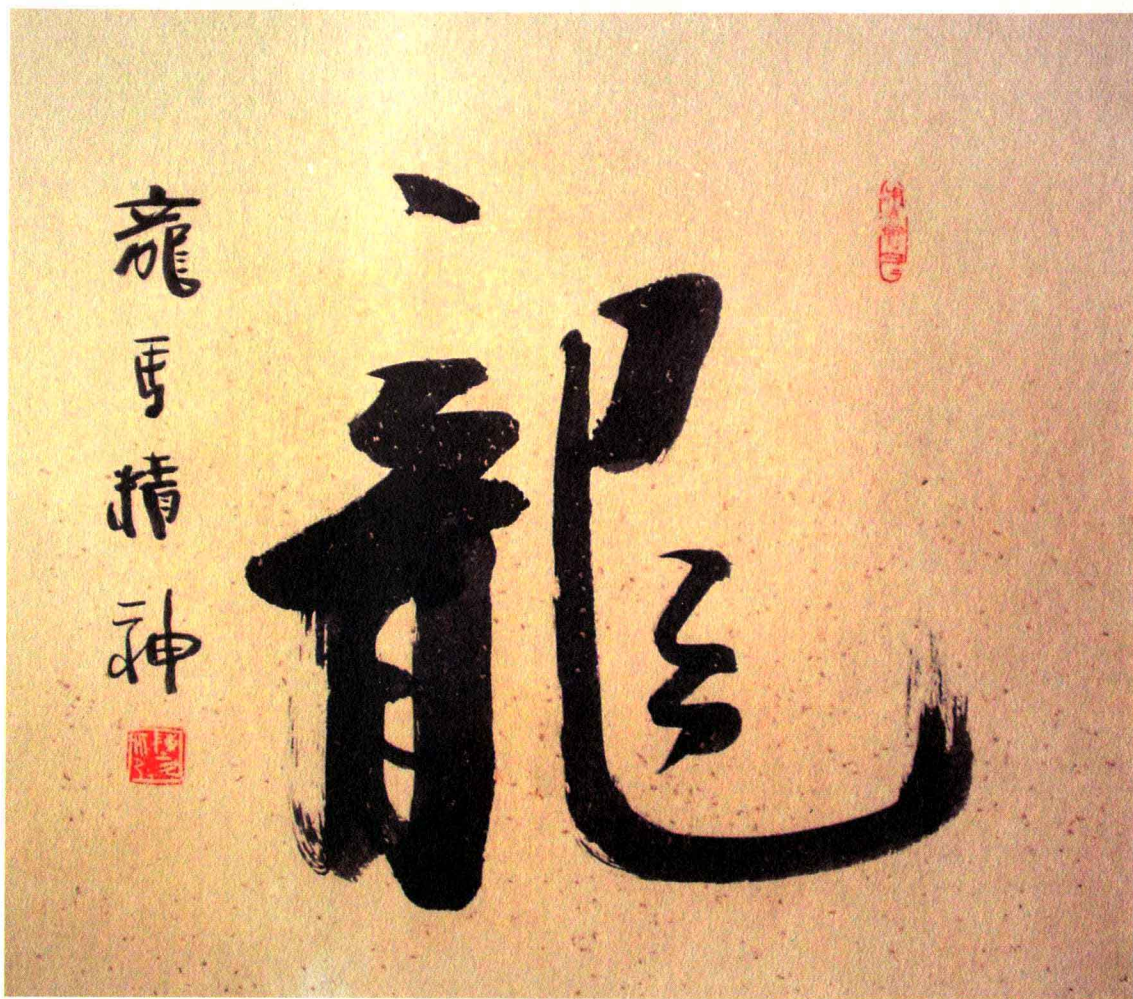 龍
龍馬精神